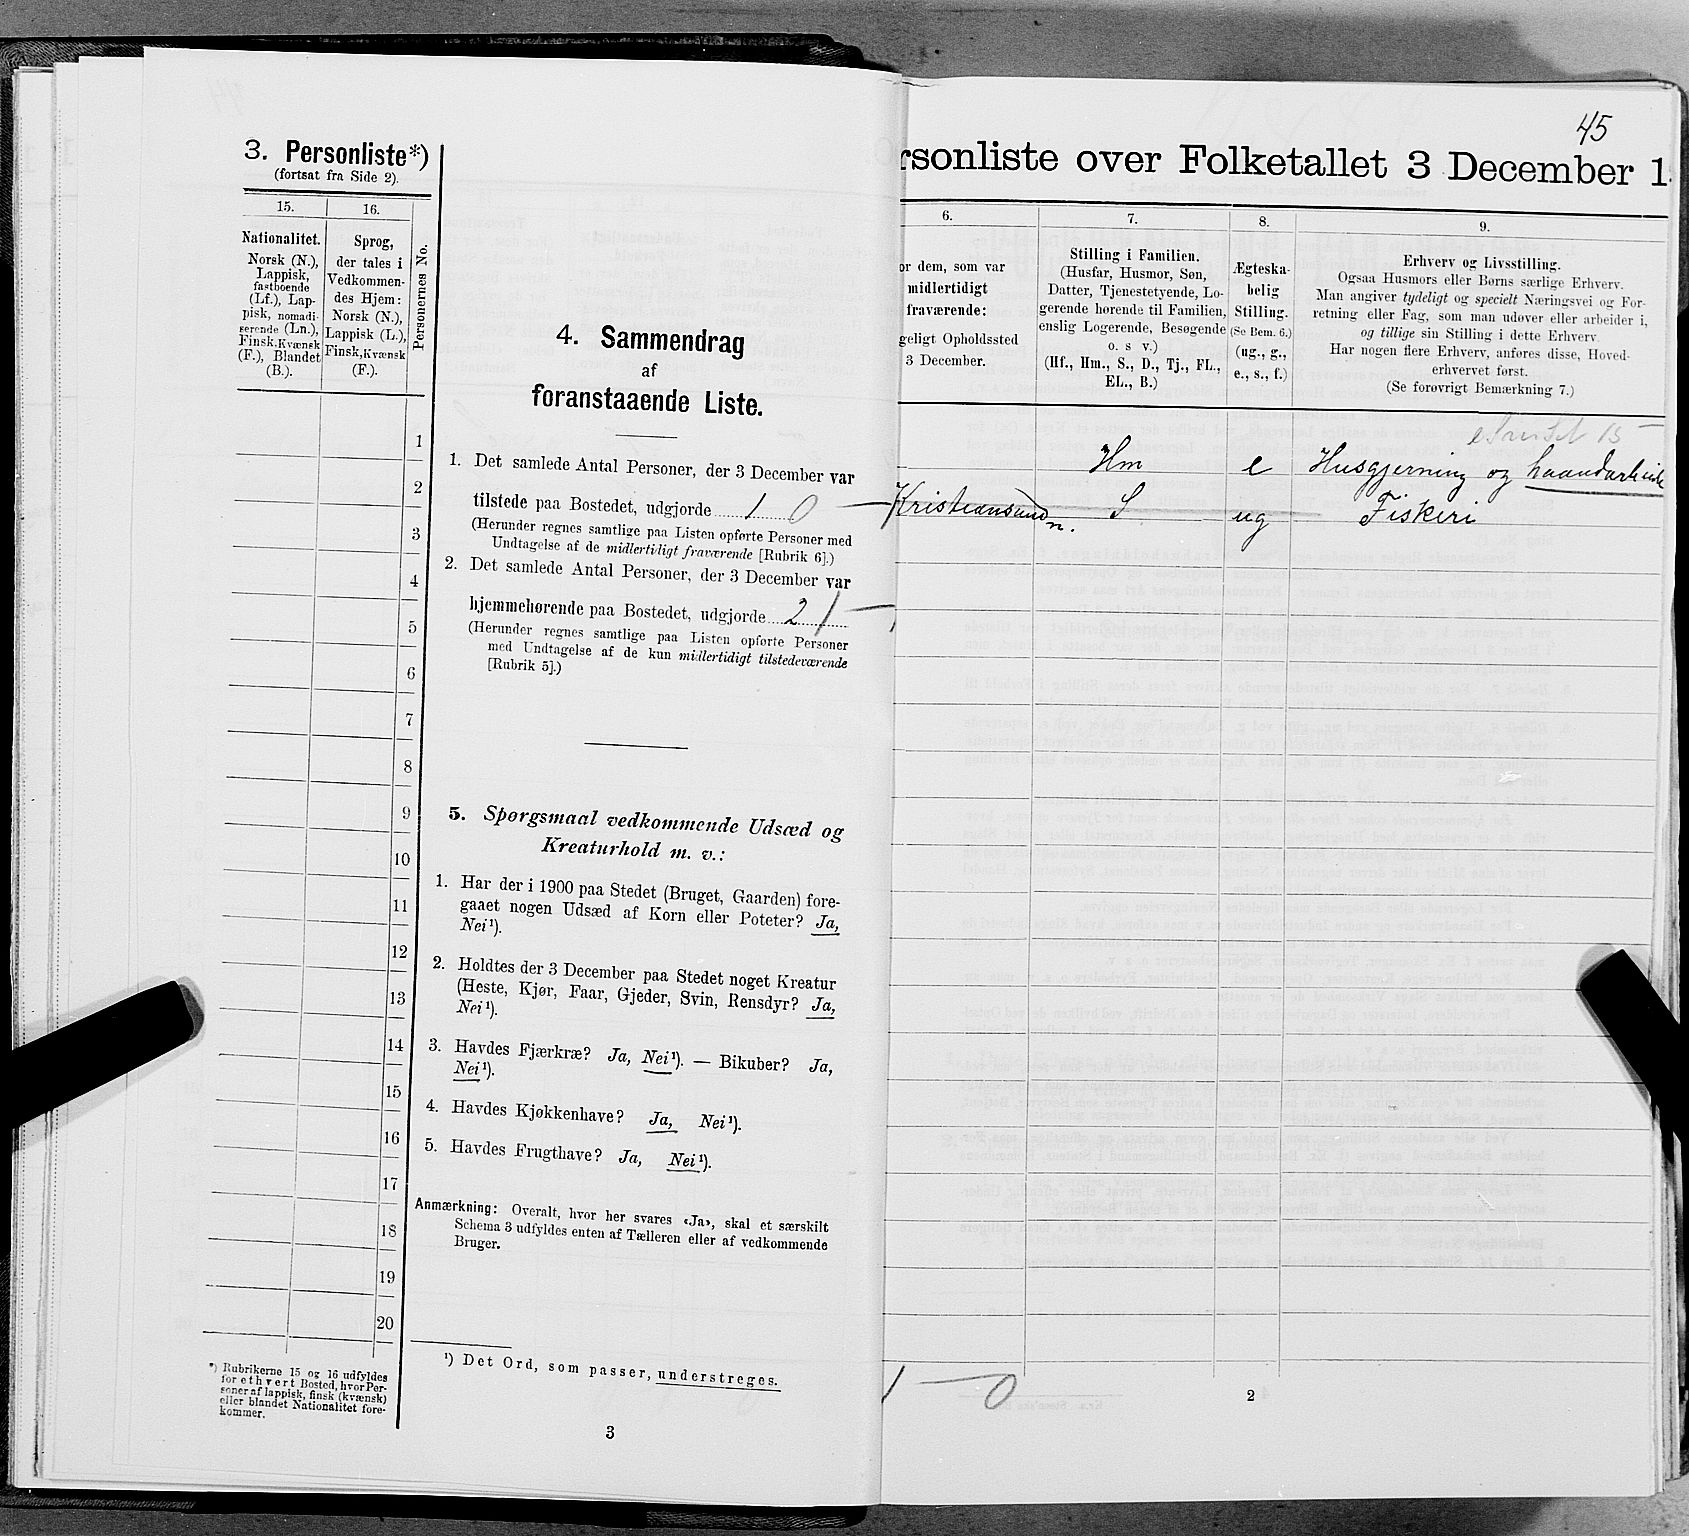 3. Personliste*)
(fortsat fra Side 2).
15.
16.
Personernes No.
Nationalitet.
Norsk (N.),
Lappisk,
fastboende
(Lf.), Lap-
pisk, nomadi-
serende (Ln.),
Finsk, Kvænsk
(F.), Blandet
(B.).
Sprog,
der tales i
Vedkommen-
des Hjem:
Norsk (N.),
Lappisk (L.),
Finsk, Kvænsk
(F.).
1
2
3
4
5
6
7
8
9
10
11
12
13
14
15
16
17
18
19
20
*) Rubrikerne 15 og 16 udfyldes
for ethvert Bosted, hvor Per-
soner af lappisk, finsk (kvænsk)
eller blandet Nationalitet fore-
kommer.
4. Sammendrag
af
foranstaaende Liste.
1. Det samlede Antal Personer, der 3 December var
tilstede paa Bostedet, udgjorde 1 0
(Herunder regnes samtlige paa Listen opførte Personer med
Undtagelse af de midlertidigt fraværende [Rubrik 6].)
2. Det samlede Antal Personer, der 3 December var
hjemmehørende paa Bostedet, udgjorde 2 1
(Herunder regnes samtlige paa Listen opførte Personer
med Undtagelse af de kun midlertidigt tilstedeværende
[Rubrik 5].)
5. Spørgsmaal vedkommende Udsæd og
Kreaturhold m. v.:
1. Har der i 1900 paa Stedet (Bruget, Gaarden) fore-
gaaet nogen Udsæd af Korn eller Poteter? Ja,
Nei¹).
2. Holdtes der 3 December paa Stedet noget Kreatur
(Heste, Kjør, Faar, Gjeder, Svin, Rensdyr? Ja,
Nei¹).
3. Havdes Fjærkræ? Ja, Nei¹). — Bikuber? Ja,
Nei¹).
4. Havdes Kjøkkenhave? Ja, Nei¹).
5. Havdes Frugthave? Ja, Nei¹).
Anmærkning: Overalt, hvor her svares «Ja», skal et særskilt
Schema 3 udfyldes enten af Tælleren eller af vedkommende
Bruger.
¹) Det Ord, som passer, understreges.
3
45
rsonliste over Folketallet 3 December 1
6.
7.
8.
9.
or dem, som var
midlertidigt
fraværende:
geligt Opholdssted
3 December.
Stilling i Familien.
(Husfar, Husmor, Søn,
Datter, Tjenestetyende, Lo-
gerende hørende til Familien,
enslig Logerende, Besøgende
o. s v.)
(Hf., Hm., S., D., Tj., FL.,
EL., B.)
Ægteska-
belig
Stilling.
(Se Bem. 6.)
(ug., g.,
e., s., f.)
Erhverv og Livsstilling.
Ogsaa Husmors eller Børns særlige Erhverv.
Man angiver tydeligt og specielt Næringsvei og For-
retning eller Fag, som man udøver eller arbeider i,
og tillige sin Stilling i dette Erhverv.
Har nogen flere Erhverv, anføres disse, Hoved-
erhvervet først.
(Se forøvrigt Bemærkning 7.)
Hm e Husgjerning og haandarbeide
Kristiansund n. S ug Fiskeri
1 — 0
2